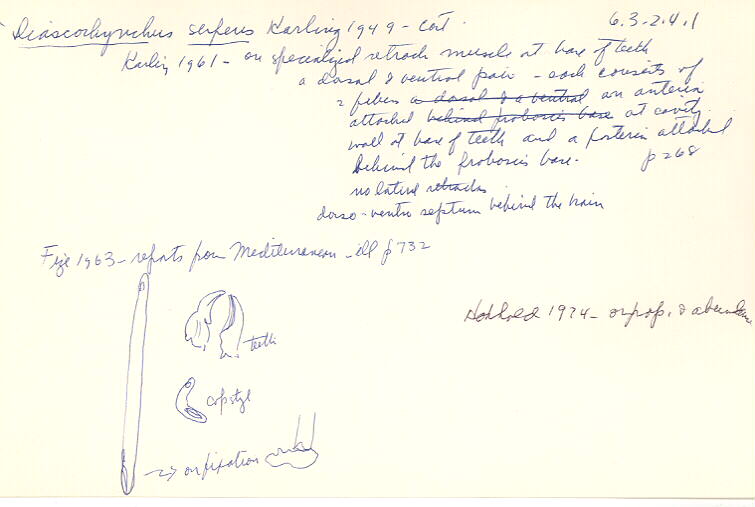 Diascorhynchus serpens Karling 1949 - cont.
6.3.2.4.1
Karling 1961 - on specialized retrach muscle at base of teeth
a dorsal & ventral pair - each consists of
2 fibers a dorsal & a ventral an anterior
attached behind proboscis base at cavity
wall at base of teeth and a posterior attached
behind the proboscis base. p 268
no lateral retractors
dorso-ventro septum behind the brain
1963 - reports from Mediterranean - ill p 732
1974 - on prop. &
teeth
cop style
on fixation